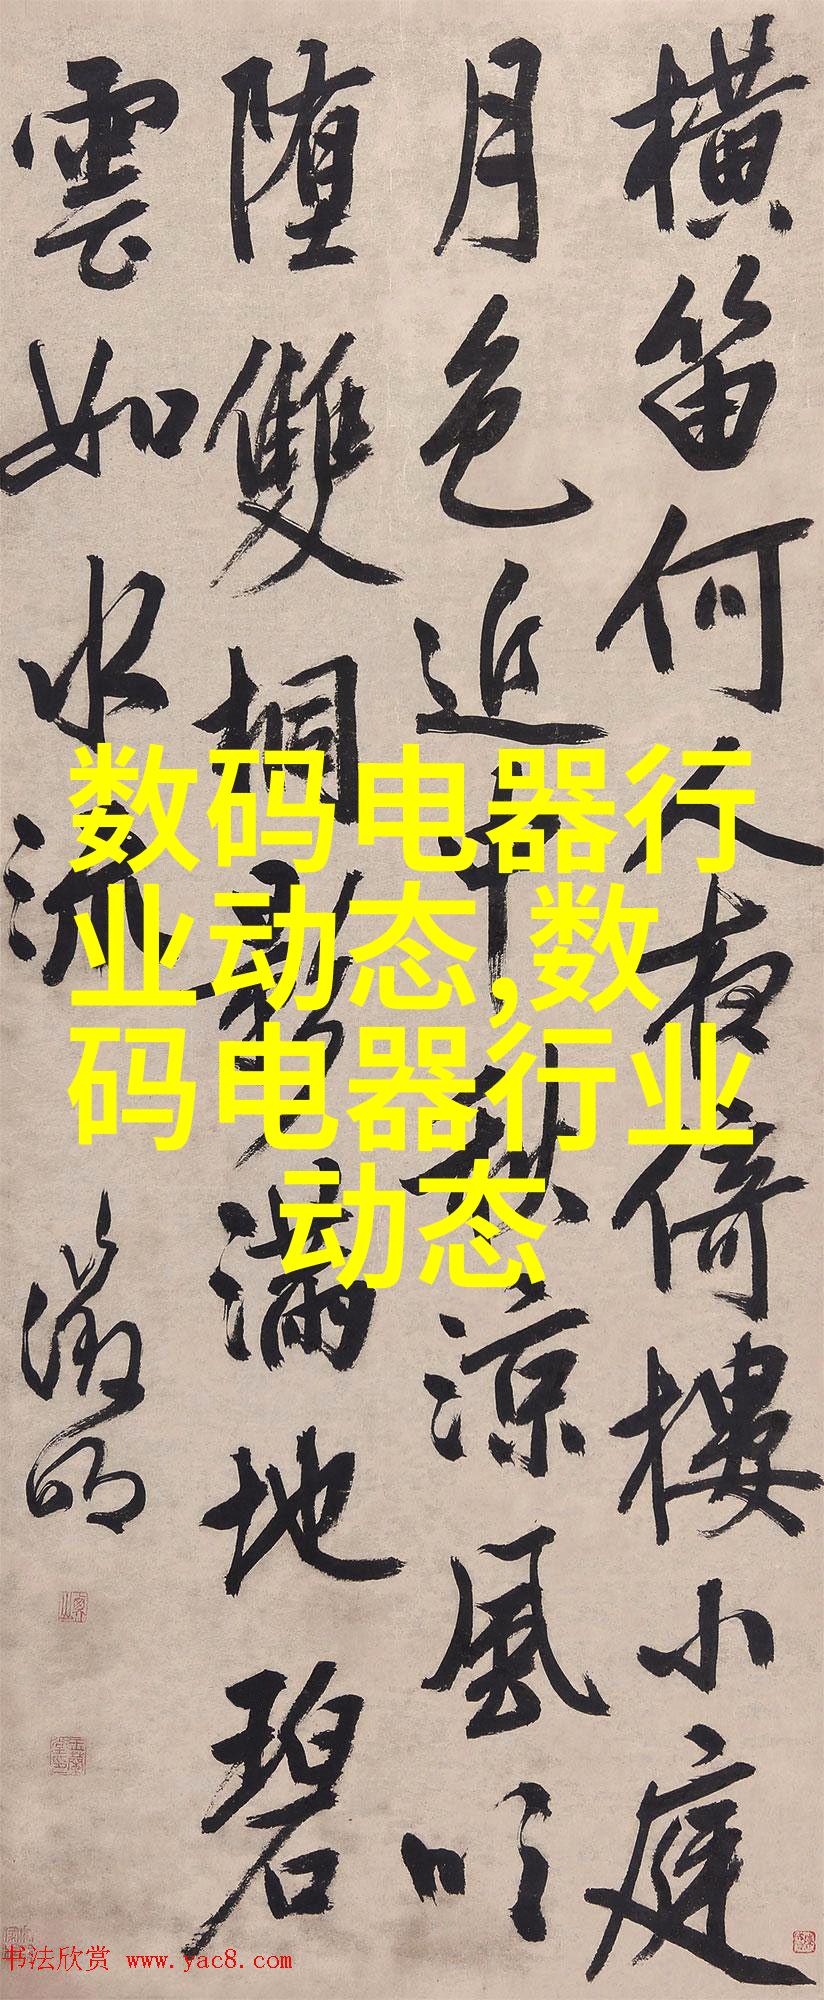 橫笛何人夜倚樓小庭
月色近中秋涼風吹
堕雙桐影滿地碧
雲如水流
徵明
数码电器行
业动态,数
码电器行业
动态
书法欣赏 www.yac8.com